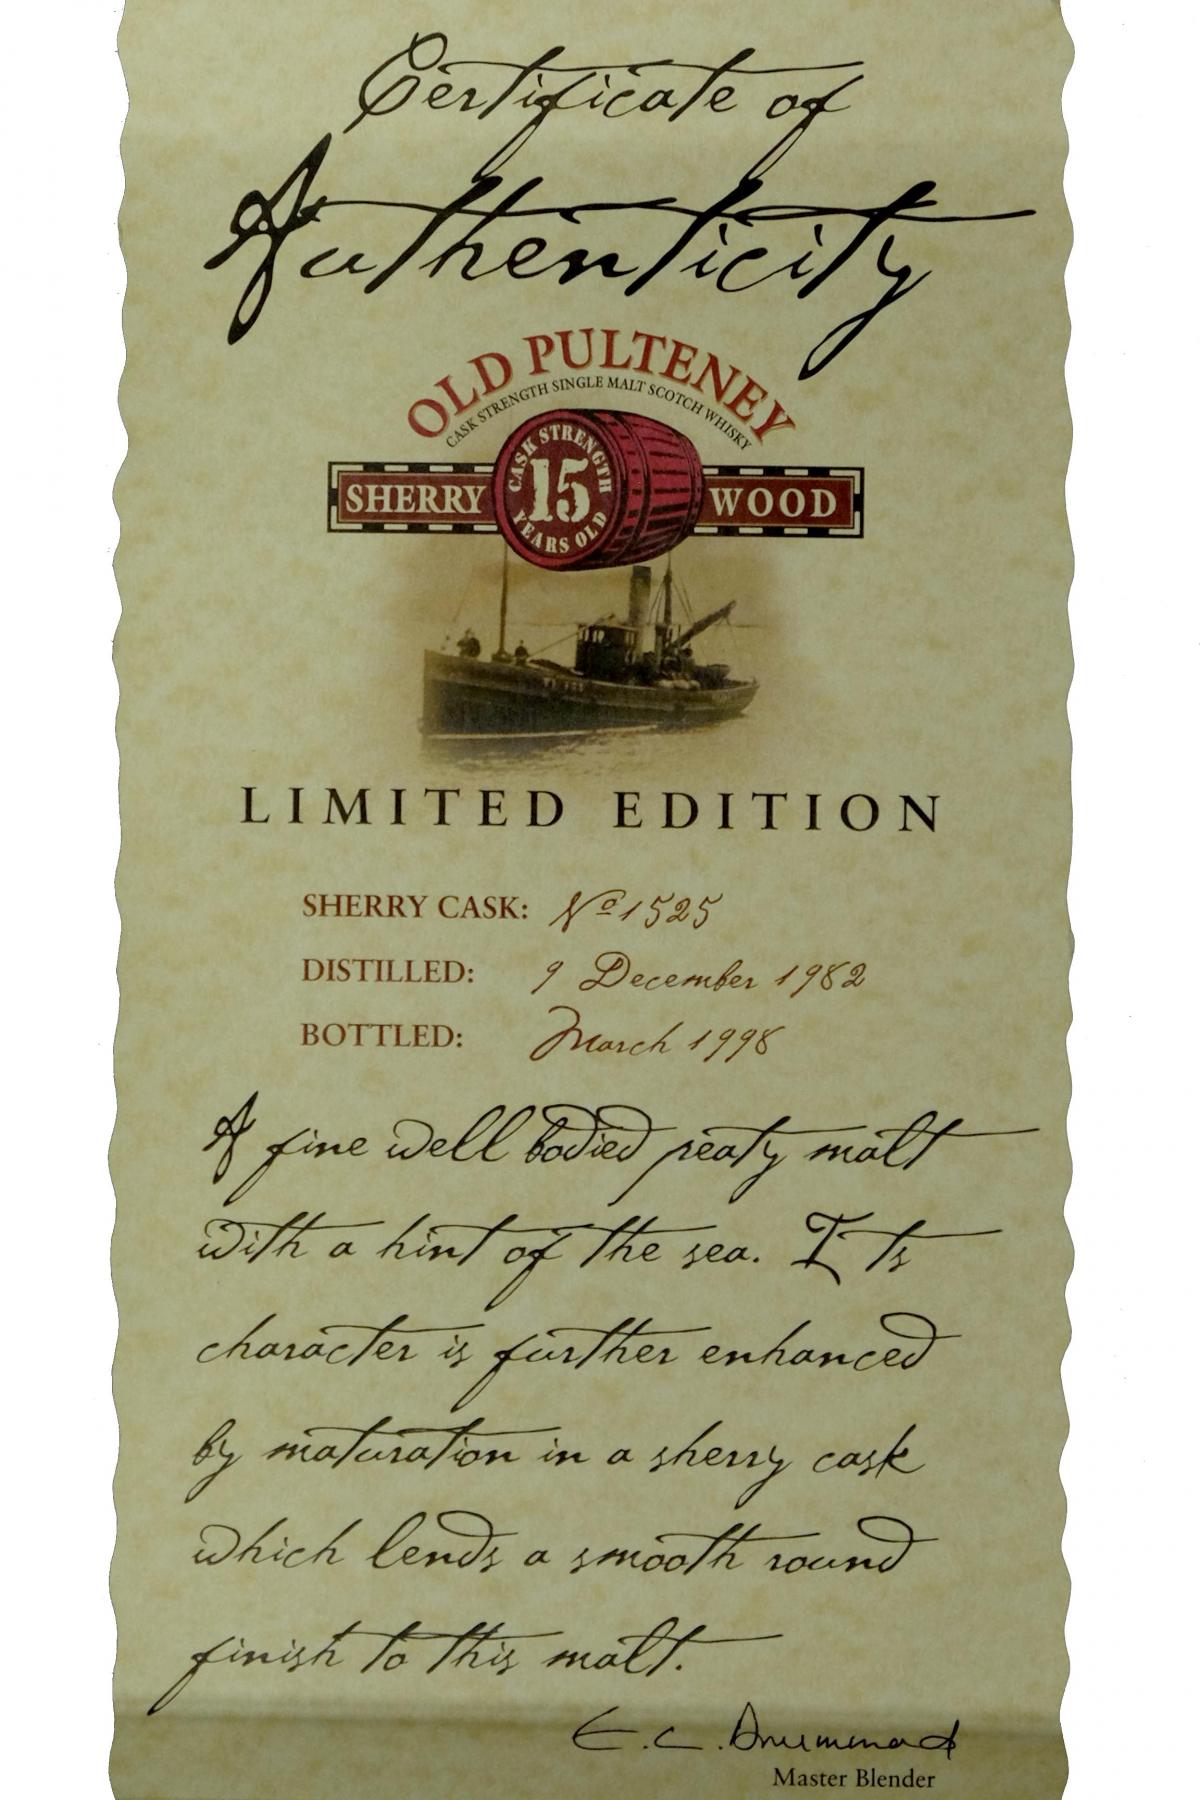 Certificate of
Authenticity
OLD PULTENEY
CASK STRENGTH SINGLE MALT SCOTCH WHISKY
SHERRY
CASK STRENGTH
15
YEARS OLD
WOOD
LIMITED EDITION
SHERRY CASK: No 1525
DISTILLED: 9 December 1982
BOTTLED: March 1998
A fine well bodied peaty malt
with a hint of the sea. Its
character is further enhanced
by maturation in a sherry cask
which lends a smooth round
finish to this malt.
E.C. Drummond
Master Blender